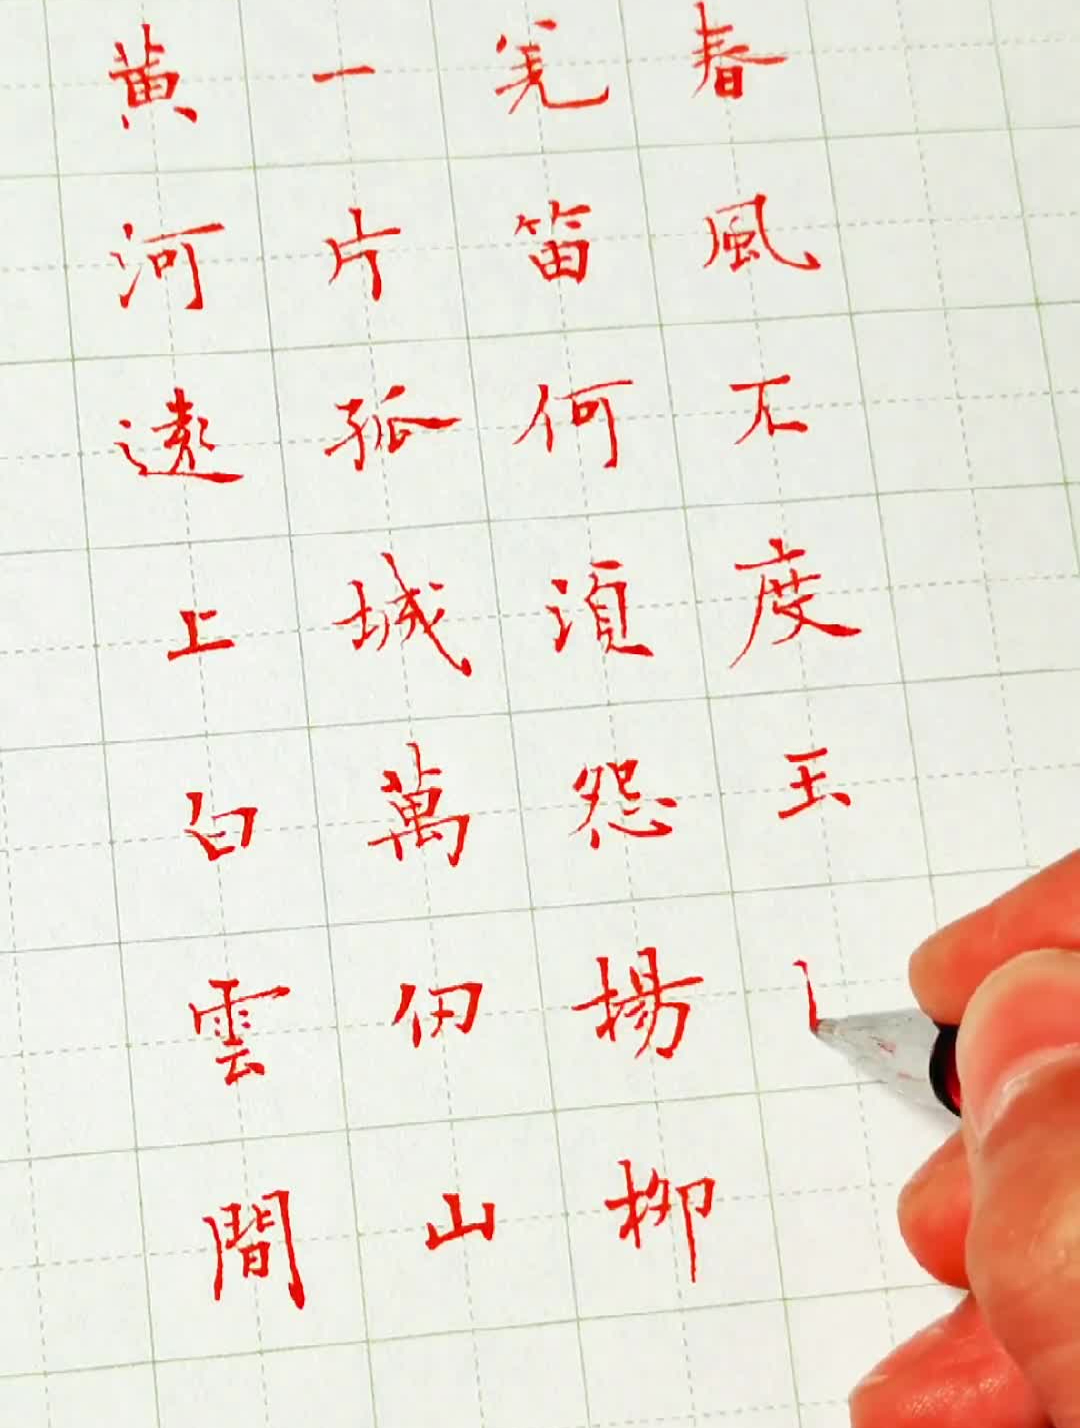 黃河遠上白雲間
一片孤城萬仞山
羌笛何須怨楊柳
春風不度玉